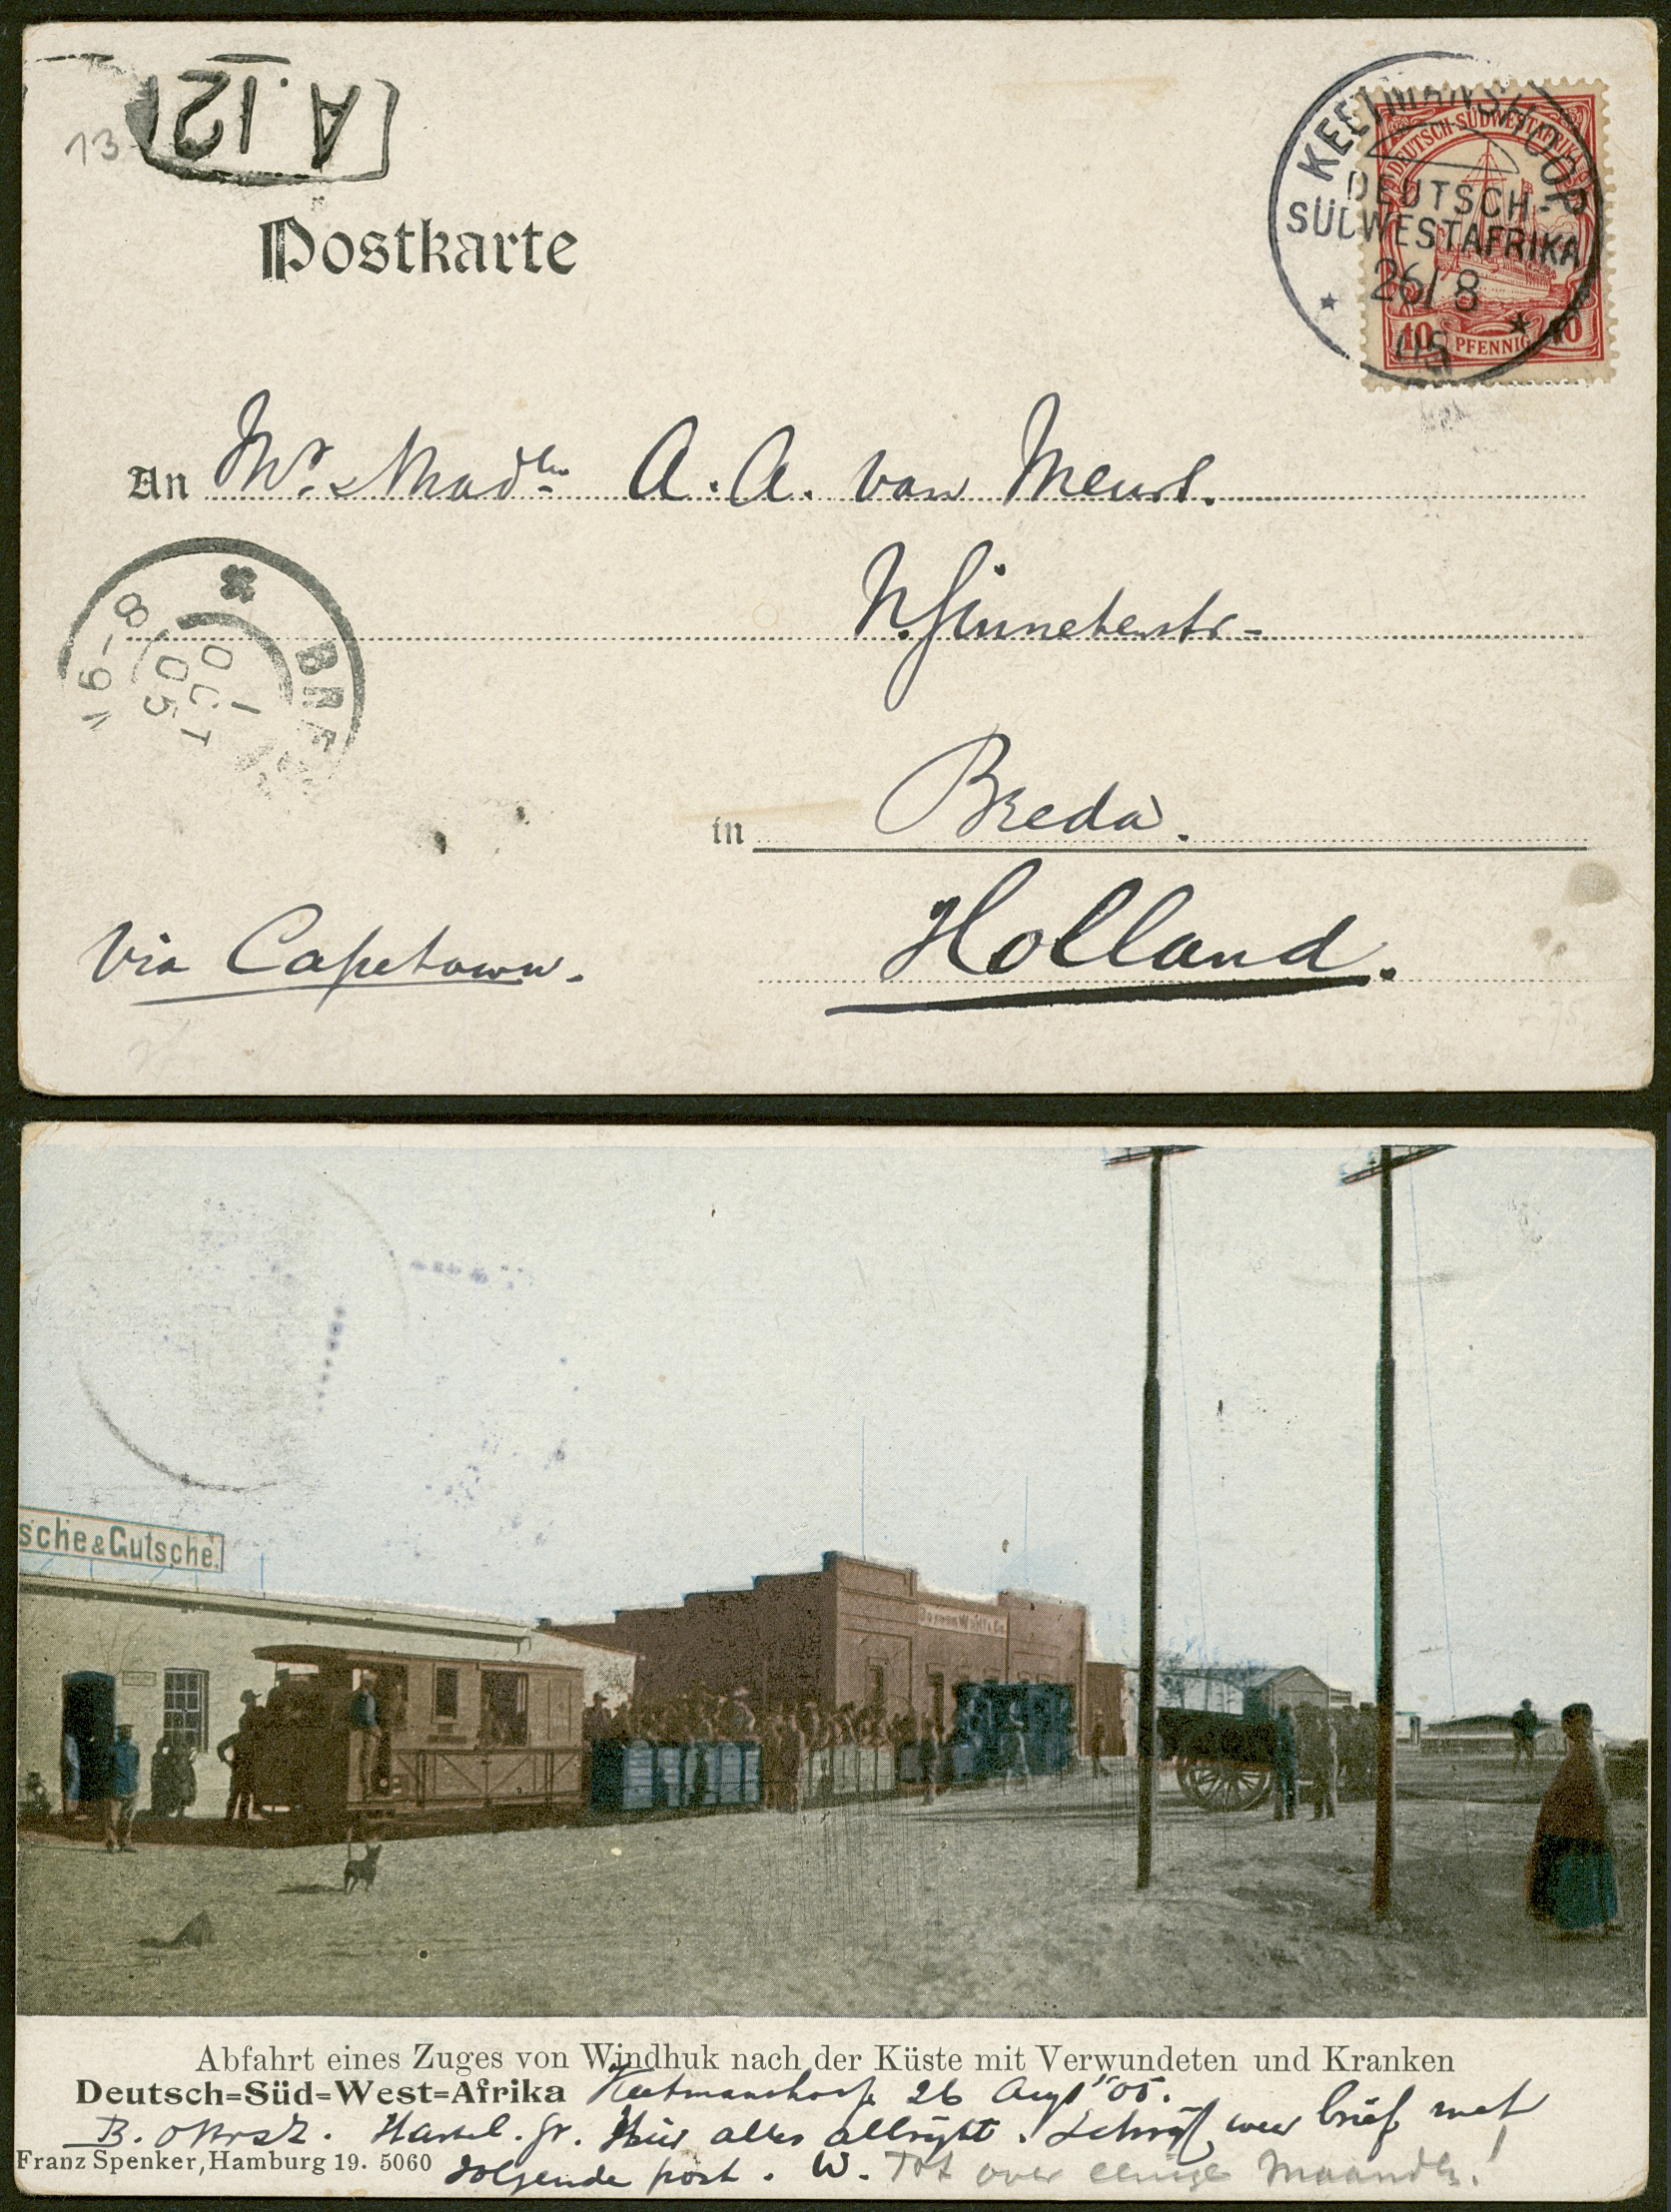 [A.12]
13
Postkarte
KEETMANSHOOP
DEUTSCH-
SÜDWESTAFRIKA
26/8
05
DEUTSCH-SÜDWESTAFRIKA
10 PFENNIG 10
An Mr. & Madlle A. A. van Meurs.
N. Ginnekenstr-
BRE
6-8 V
1 OCT
05
in Breda.
Via Capetown.
Holland.
sche & Gutsche.
Abfahrt eines Zuges von Windhuk nach der Küste mit Verwundeten und Kranken
Deutsch=Süd=West=Afrika Keetmanshoop 26 Aug 05.
Hier alles allright. Schrijf weer brief met
Franz Spenker, Hamburg 19. 5060 volgende post. W. Tot over eenige Maanden!